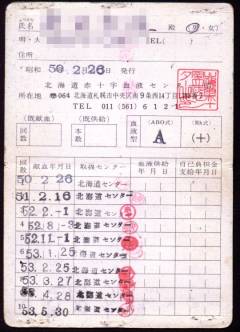 氏名 殿 (男・女)
明・大 TEL(
住所
昭和 50.2.26 発行
北海道赤十字血液センター
所在地 〒064 北海道札幌市中央区南9条西14丁目
TEL 011 (561) 612
(既献血) (既供給) 血液型 (ABO式) (Rh式)
本 本 A (+)
回数 献血年月日 取扱センター 血液供給年月日 自己負担金支給年月日
50.2.26 北海道センター
51.2.16 北海道センター
52.2.-1 北海道センター
52.8.-3 北海道センター
52.11.-1 北海道センター
53.1.25 北海道センター
53.2.25 北海道センター
53.3.27 北海道センター
53.4.28 北海道センター
53.5.30